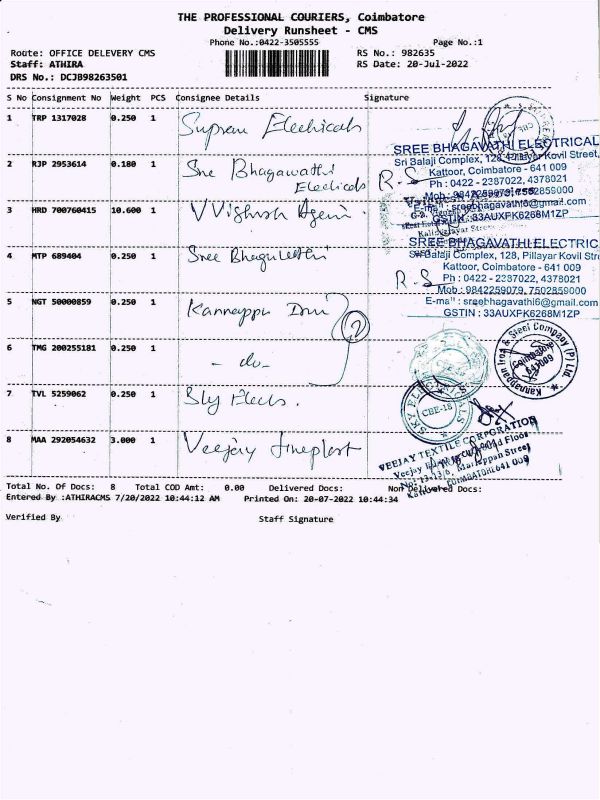 THE PROFESSIONAL COURIERS, Coimbatore
Delivery Runsheet - CMS
Phone No.:0422-3505555 Page No.:1
Route: OFFICE DELEVERY CMS RS No.: 982635
Staff: ATHIRA RS Date: 20-Jul-2022
DRS No.: DCJB98263501
S No Consignment No Weight PCS Consignee Details Signature
1 TRP 1317028 0.250 1 Supreme Electricals
SREE BHAGAVATHI ELECTRICAL
Sri Balaji Complex, 128, Pillayar Kovil Street,
Kattoor, Coimbatore - 641 009
Ph : 0422 - 2387022, 4378021
2 RJP 2953614 0.180 1 Sree Bhagawathi
Electricals R.S
Mob : 9842259079, 7502859000
E-mail : sreebhagavathi6@gmail.com
GSTIN : 33AUXPK6268M1ZP
3 HRD 700760415 10.600 1
SREE BHAGAVATHI ELECTRIC
Sri Balaji Complex, 128, Pillayar Kovil Str
4 MTP 689404 0.250 1 Sree
Kattoor, Coimbatore - 641 009
R.S Ph : 0422 - 2387022, 4378021
Mob : 9842259079, 7502859000
E-mail : sreebhagavathi6@gmail.com
GSTIN : 33AUXPK6268M1ZP
5 NGT 50000859 0.250 1 Kannappa
2
Kannappan Iron & Steel Company (P) Ltd.
Coimbatore
641 009
6 TMG 200255181 0.250 1 - do -
7 TVL 5259062 0.250 1 Sky Elects.
SKY ELECTRICALS
CBE-18
8 MAA 292054632 3.000 1 Veejay
VEEJAY TEXTILE CORPORATION
Floor
Mariappan Street
COIMBATORE 641 009
Total No. Of Docs: 8 Total COD Amt: 0.00 Delivered Docs: Non Delivered Docs:
Entered By :ATHIRACMS 7/20/2022 10:44:12 AM Printed On: 20-07-2022 10:44:34
Verified By Staff Signature